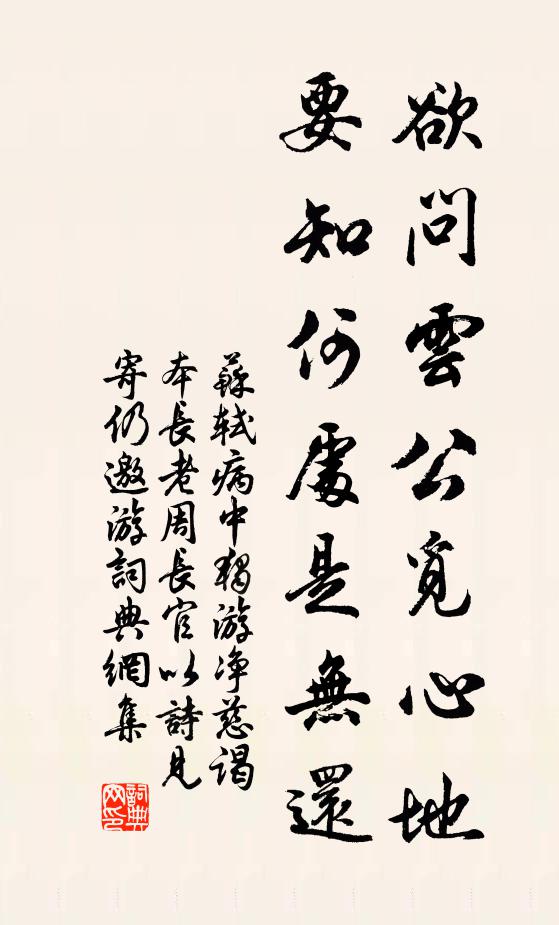 欲問雲公覓心地
要知何處是無還
蘇軾病中獨游净慈謁
本長老周長官以詩見
寄仍邀游詞典網集
詞典
网印